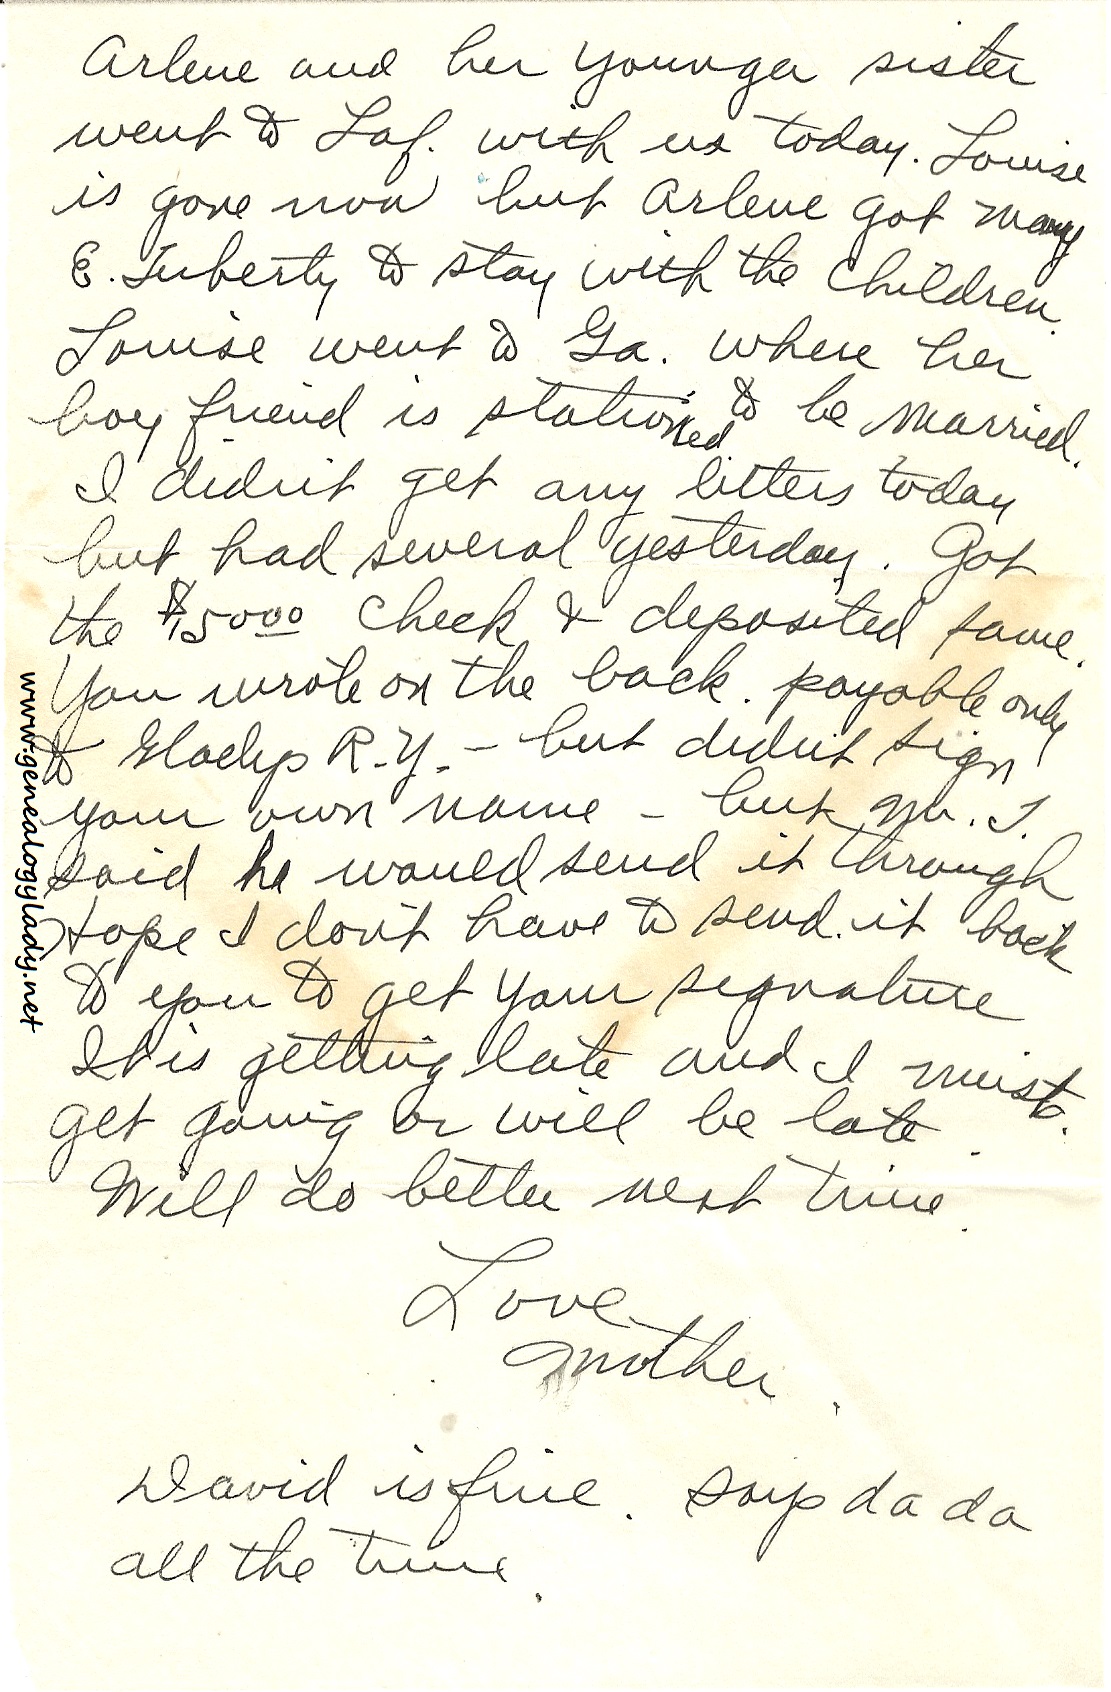 Arlene and her younger sister
went to Laf. with us today. Louise
is gone now but Arlene got Mary
E. Tuberty to stay with the children.
Louise went to Ga. where her
boy friend is stationed to be married.
I didn't get any letters today
but had several yesterday. Got
the $50.00 check & deposited same.
You wrote on the back. payable only
to Gladys R.Y. – but didn't sign
your own name – but Mr. T.
said he would send it through
Hope I don't have to send it back
to you to get your signature
It is getting late and I must
get going or will be late.
Will do better next time.
Love
Mother.
David is fine. says da da
all the time.
www.genealogylady.net